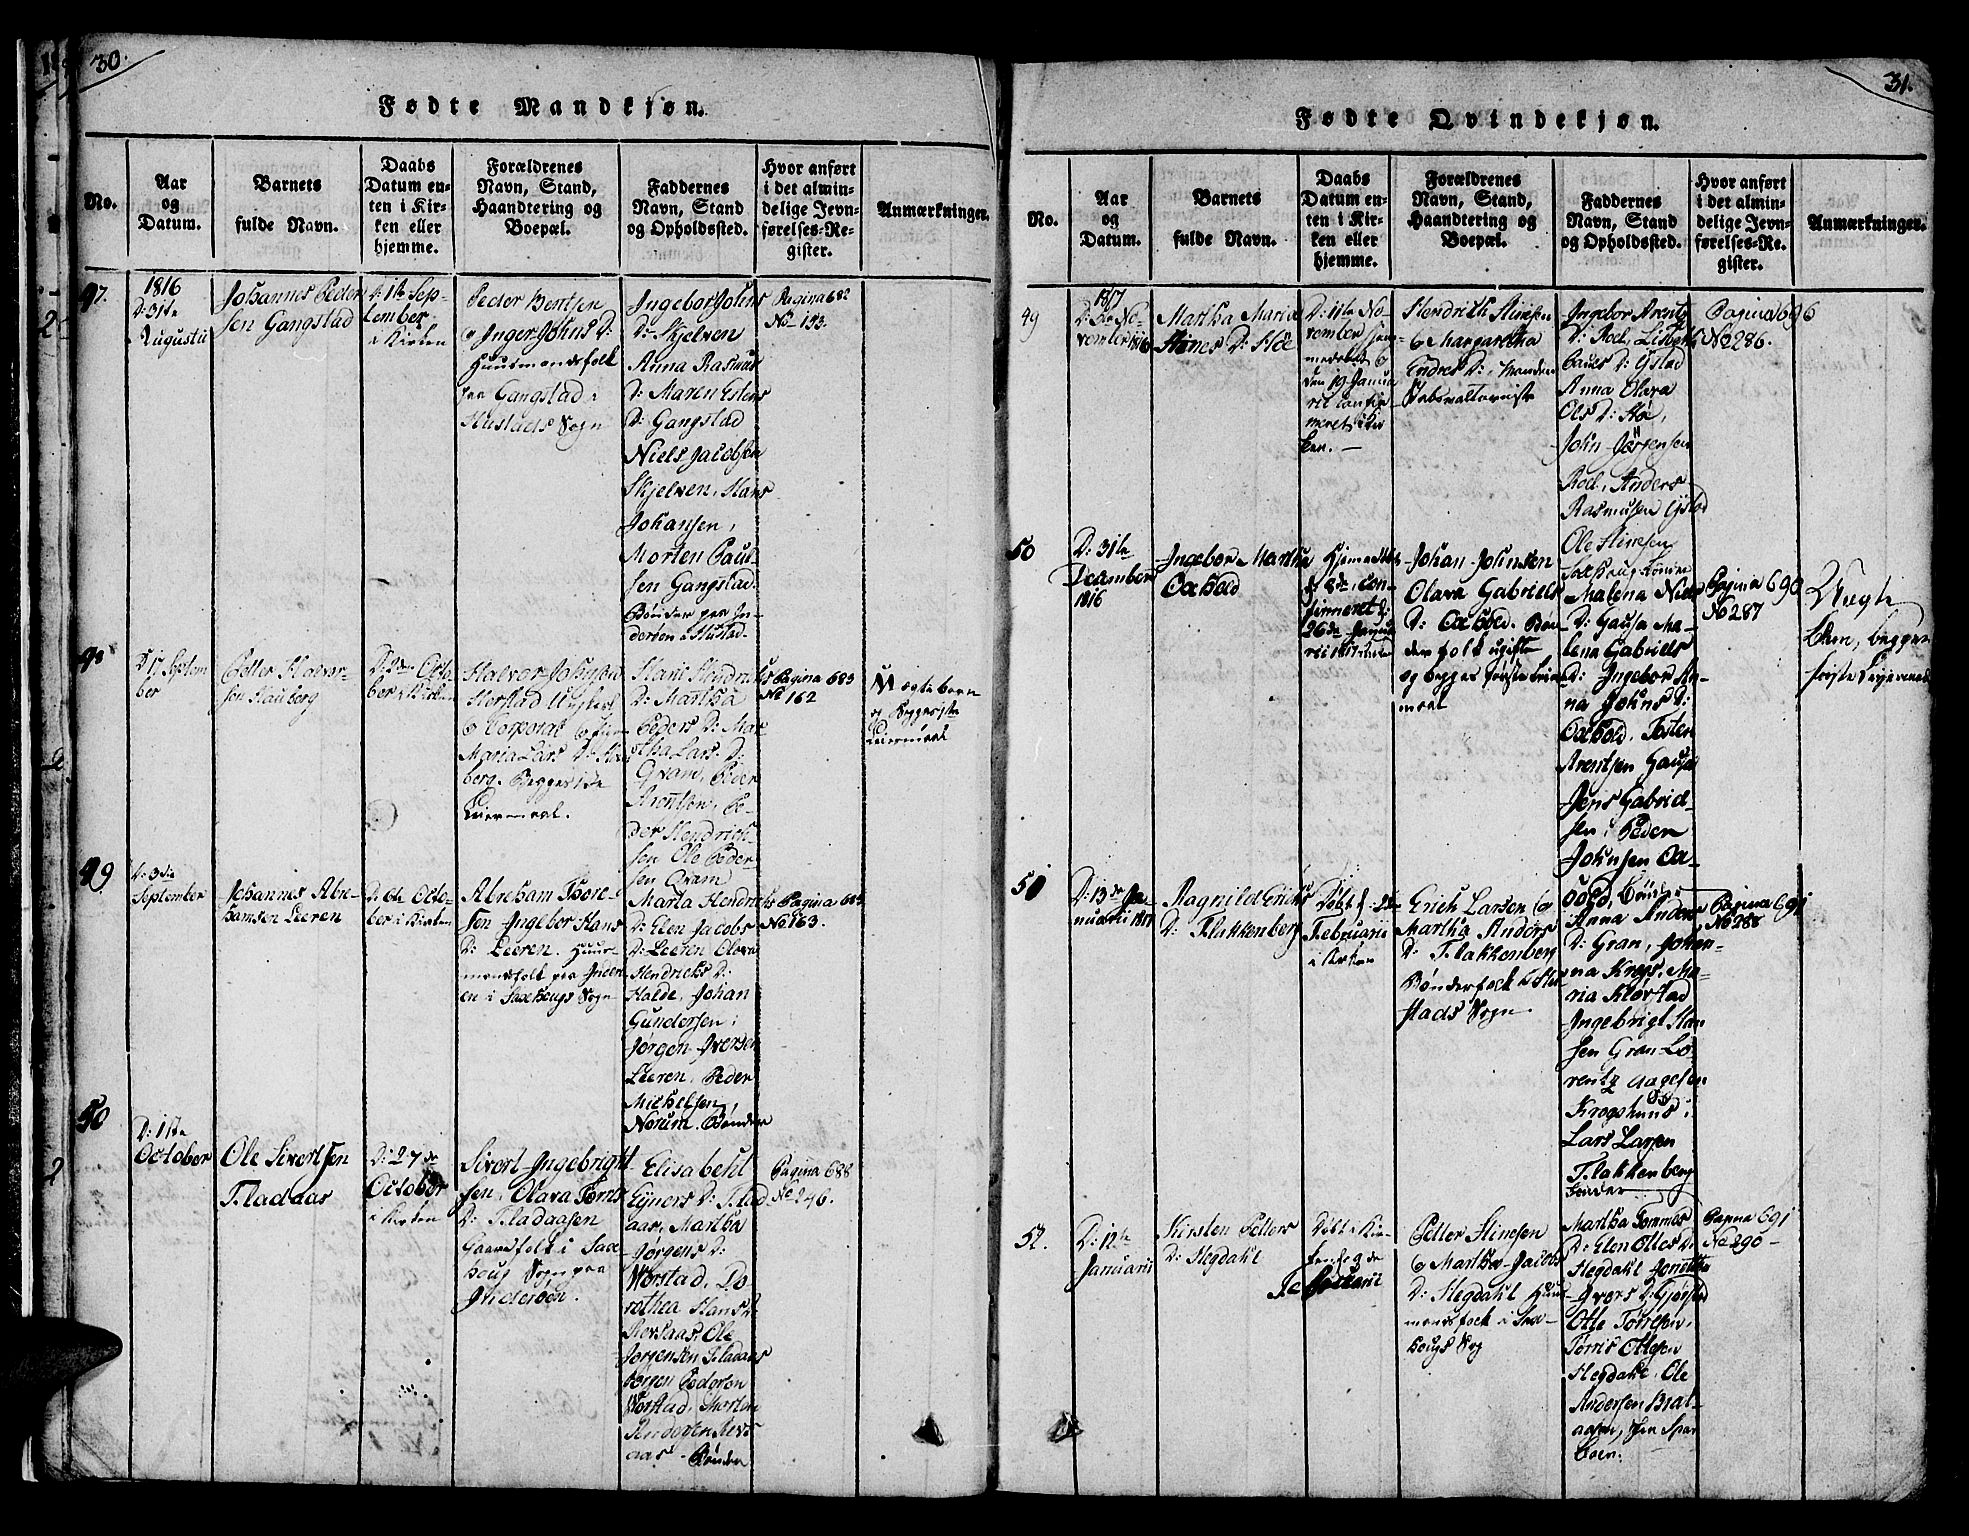 30.
Fødte Mandkjøn.
No.
Aar
og
Datum.
Barnets
fulde Navn.
Daabs
Datum en-
ten i Kir-
ken eller
hjemme.
Forældrenes
Navn, Stand,
Haandtering og
Boepæl.
Faddernes
Navn, Stand
og Opholdssted.
Hvor anført
i det almin-
delige Jevn-
førelses-Re-
gister.
Anmærkninger.
47.
1816
D: 31te
Augustii
Johannes Peder
sen Gangstad
d: 1te Sep-
tember
i Kirken
Peder Bentsen
og Inger Johns D:
Huusmandsfolk
paa Gangstad i
Hustads Sogn
Ingebor Johns
D: Skjelven
Anna Rasmus
D: Maren Estens
D: Gangstad
Niels Jacobsen
Skjelven, Hans
Johansen,
Morten Paul-
sen Gangstad.
Bønder paa In-
derøen i Hustad
Pagina 682
No 153.
48
D: 17 Septem
ber
Petter Halvor
sen Stauberg
D: 2den Octo-
ber i Kirken
Halvor Johnsen
og Corporal
Maria Lars D:
berg. Begges 1ste
Leiermaal.
Marit Hendrichs
D: Martha
Peders D: Mar
tha Lars D:
Gram, Peder
Arentsen, Pe-
der Hendrich-
sen Ole Peder-
sen Gram
Pagina 683
No 162
Uægte barn
og Begges 1ste
Leiermaal
49
D: 3die
September
Johannes Abra
hamsen Leeren
D: 6te Octo-
ber i Kirken
Abraham Thore-
sen Ingebor Hans
D: Leeren. Huus-
mandsfolk paa Inder-
øen i Saxhougs Sogn
Marta Hendrichs
D: Elen Jacobs
D: Leeren Olava
Hendrichs D:
Halde, Johan
Gundersen,
Jørgen Iversen
Leeren, Peder
Michelsen,
Norum. Bønder
Pagina 683
No 163.
50
D: 1ste
October
Ole Sivertsen
Fladaas
D: 27de
October
i Kirken
Sivert Ingebrigt
sen, Olava Tørris
D: Fladaasen
Gaardfolk i Saxe
houg Sogn paa
Inderøen.
Elisabeht
Ejners D: Flad
aas, Martha
Jørgens D:
Worstad, Do-
rothea Hans D:
Revsaas, Ole
Jørgensen Fladaas
Jørgen Pedersen
Worstad, Morten
Andersen Revs
aas - Bønder
Pagina 688
No 246.
31.
Fødte Qvindekjøn.
No.
Aar
og
Datum.
Barnets
fulde Navn.
Daabs
Datum en-
ten i Kir-
ken eller
hjemme.
Forældrenes
Navn, Stand,
Haandtering og
Boepæl.
Faddernes
Navn, Stand
og Opholdssted.
Hvor anført
i det almin-
delige Jevn-
førelses-Re-
gister.
Anmærkninger.
49
1817
No-
vember 1816
Martha Maria
D:
D: 11te No-
vember hjem-
medøbt og
den 19 Janua-
rii confir-
meret i Kir
ken. -
Hendrich Stinesen
og Margaretha
Endres D:
Ingebor Arentz
D: Roel, Lisbeth
Pauls D: Ystad
Anna Olava
Ols D:
John Jørgensen
Roel, Anders
Rasmusen Ystad
Ole Stinesen
Pagina 696
No 286.
50
D: 31te
December
1816
Ingebor Martha
Oxhold
Hjemmedøbt
Con-
firmeret d:
26de Janua-
rii 1817
Johan Johnsen
Olava Gabriels
D: Oxhold. Bøn-
derfolk ugifte
og begges første Leier-
maal
Malena Niels
D: Gausa Ma-
lena Gabriels
D: Ingebor An-
na Johns D:
Oxhold, Tosten
Arentsen Gausa
Jens Gabriel-
sen, Peder
Johnsen Ox-
hold, Bønder
Pagina 690
No 287
Uægte
barn, begges
første Leiermaal
51
D: 13de Ja-
nuarii 1817
Ragnild Erichs
D: Flakkenberg
Døbt d: 2den
Februarii
i Kirken
Erich Larsen og
Martha Anders
D: Flakkenberg
Bønderfolk i Hu-
stads Sogn.
Anna Anders
D: Gran, Johan-
na Krogs, Ma-
ria Klørstad
Ingebrigt Han
sen Gran Lo-
rentz Aagesen
Krogshuus,
Lars Larsen
Flakkenberg
Bønder
Pagina 691
No 288
52.
D: 12te
Januarii
Kirsten Petters
D: Hegdahl
Døbt i Kir-
ken d: 9de
Februarii
Petter Stinesen
og Martha Jacobs
D: Hegdahl Huus-
mandsfolk i Sax-
hougs Sog
Martha Tommes
D: Elen Ottes D:
Hegdahl
Ivers D:
Otte Tørresen,
Tørris Ottesen
Hegdahl, Ole
Andersen Brat-
aasen,
Pagina 691
No 290